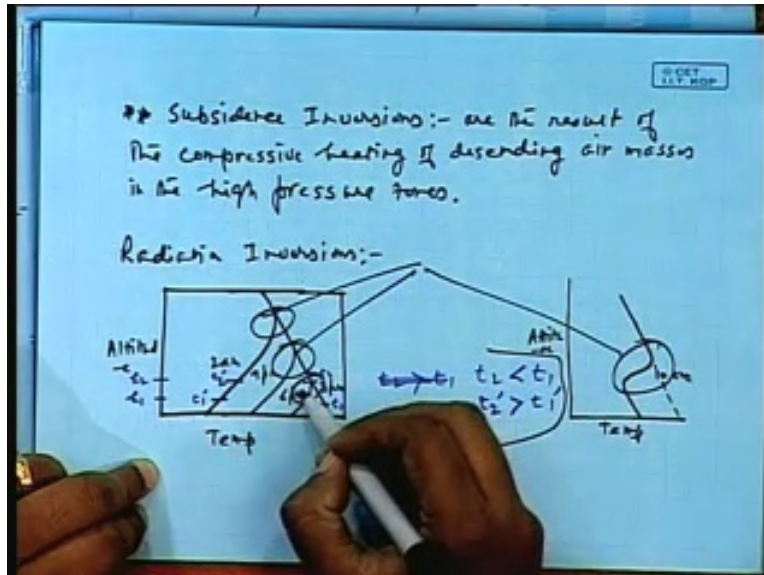 © CET
I.I.T. KGP
** Subsidence Inversions:- are the result of
the compressive heating of desending air masses
in the high pressure zones.
Radiation Inversions:-
Altitude
t₂
t₁
t₂'
t₁'
Temp
t₂ < t₁
t₂' > t₁'
Temp